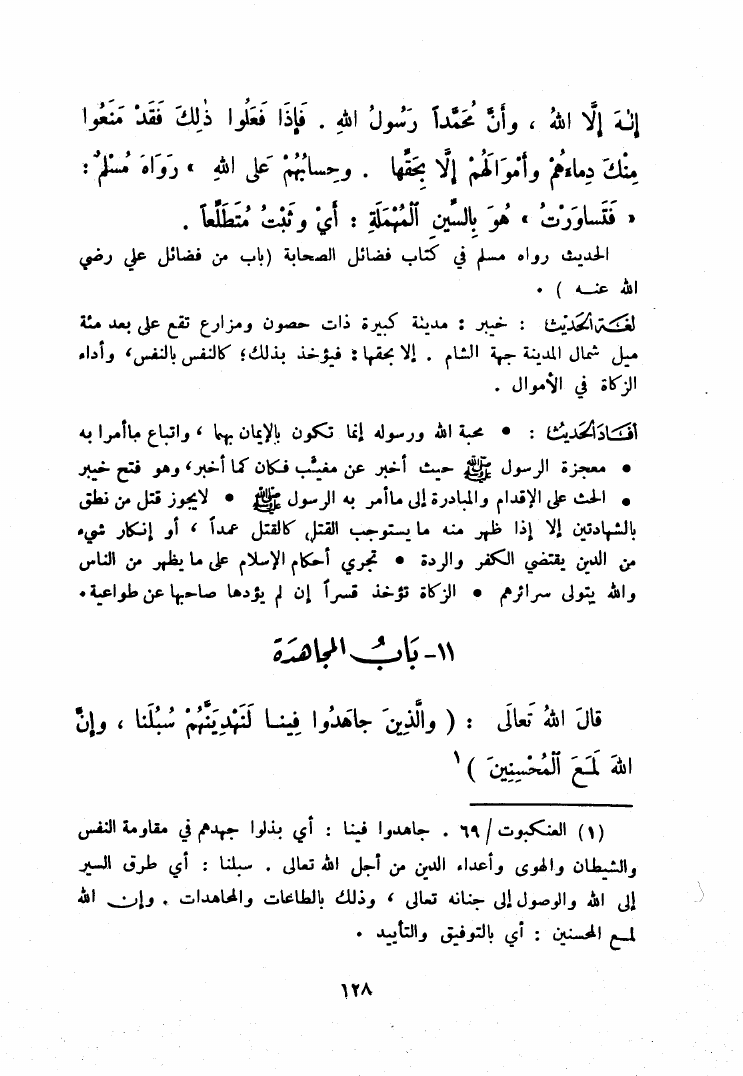 إِلٰهَ إِلَّا اللهُ ، وأَنَّ مُحَمَّداً رَسُولُ اللهِ . فَإِذَا فَعَلُوا ذٰلِكَ فَقَدْ مَنَعُوا
مِنْكَ دِماءَهُمْ وأَمْوَالَهُمْ إِلَّا بِحَقِّها . وحِسابُهُمْ عَلى اللهِ » رَوَاهَ مُسْلِمٌ :
« فَتَساوَرْتُ » هُوَ بِالسِّينِ الْمُهْمَلَةِ : أَيْ وثَبْتُ مُتَطَلِّعاً .
الحديث رواه مسلم في كتاب فضائل الصحابة (باب من فضائل علي رضي
الله عنه ) .
لغَة الحَديث : خيبر : مدينة كبيرة ذات حصون ومزارع تقع على بعد مئة
ميل شمال المدينة جهة الشام . إلا بحقها : فيؤخذ بذلك؛ كالنفس بالنفس، وأداء
الزكاة في الأموال .
أفَادَ الحَديث : • محبة الله ورسوله إنما تكون بالإيمان بهما ، واتباع ماأمرا به
• معجزة الرسول ﷺ حيث أخبر عن مغيَّب فكان كما أخبر، وهو فتح خيبر
• الحث على الإقدام والمبادرة إلى ماأمر به الرسول ﷺ • لايجوز قتل من نطق
بالشهادتين إلا إذا ظهر منه مايستوجب القتل كالقتل عمداً ، أو إنكار شيء
من الدين يقتضي الكفر والردة • تجري أحكام الإسلام على ما يظهر من الناس
والله يتولى سرائرهم • الزكاة تؤخذ قسراً إن لم يؤدها صاحبها عن طواعية .
١١- بَابُ المجاهدَة
قالَ اللهُ تَعالَى : ( والَّذِينَ جاهَدُوا فِينا لَنَهْدِيَنَّهُمْ سُبُلَنا ، وإنَّ
اللهَ لَمَعَ الْمُحْسِنِينَ )١
(١) العنكبوت / ٦٩ . جاهدوا فينا : أي بذلوا جهدهم في مقاومة النفس
والشيطان والهوى وأعداء الدين من أجل الله تعالى . سبلنا : أي طرق السير
إلى الله والوصول إلى جنانه تعالى ، وذلك بالطاعات والمجاهدات . وإن الله
لمع المحسنين : أي بالتوفيق والتأييد .
١٢٨